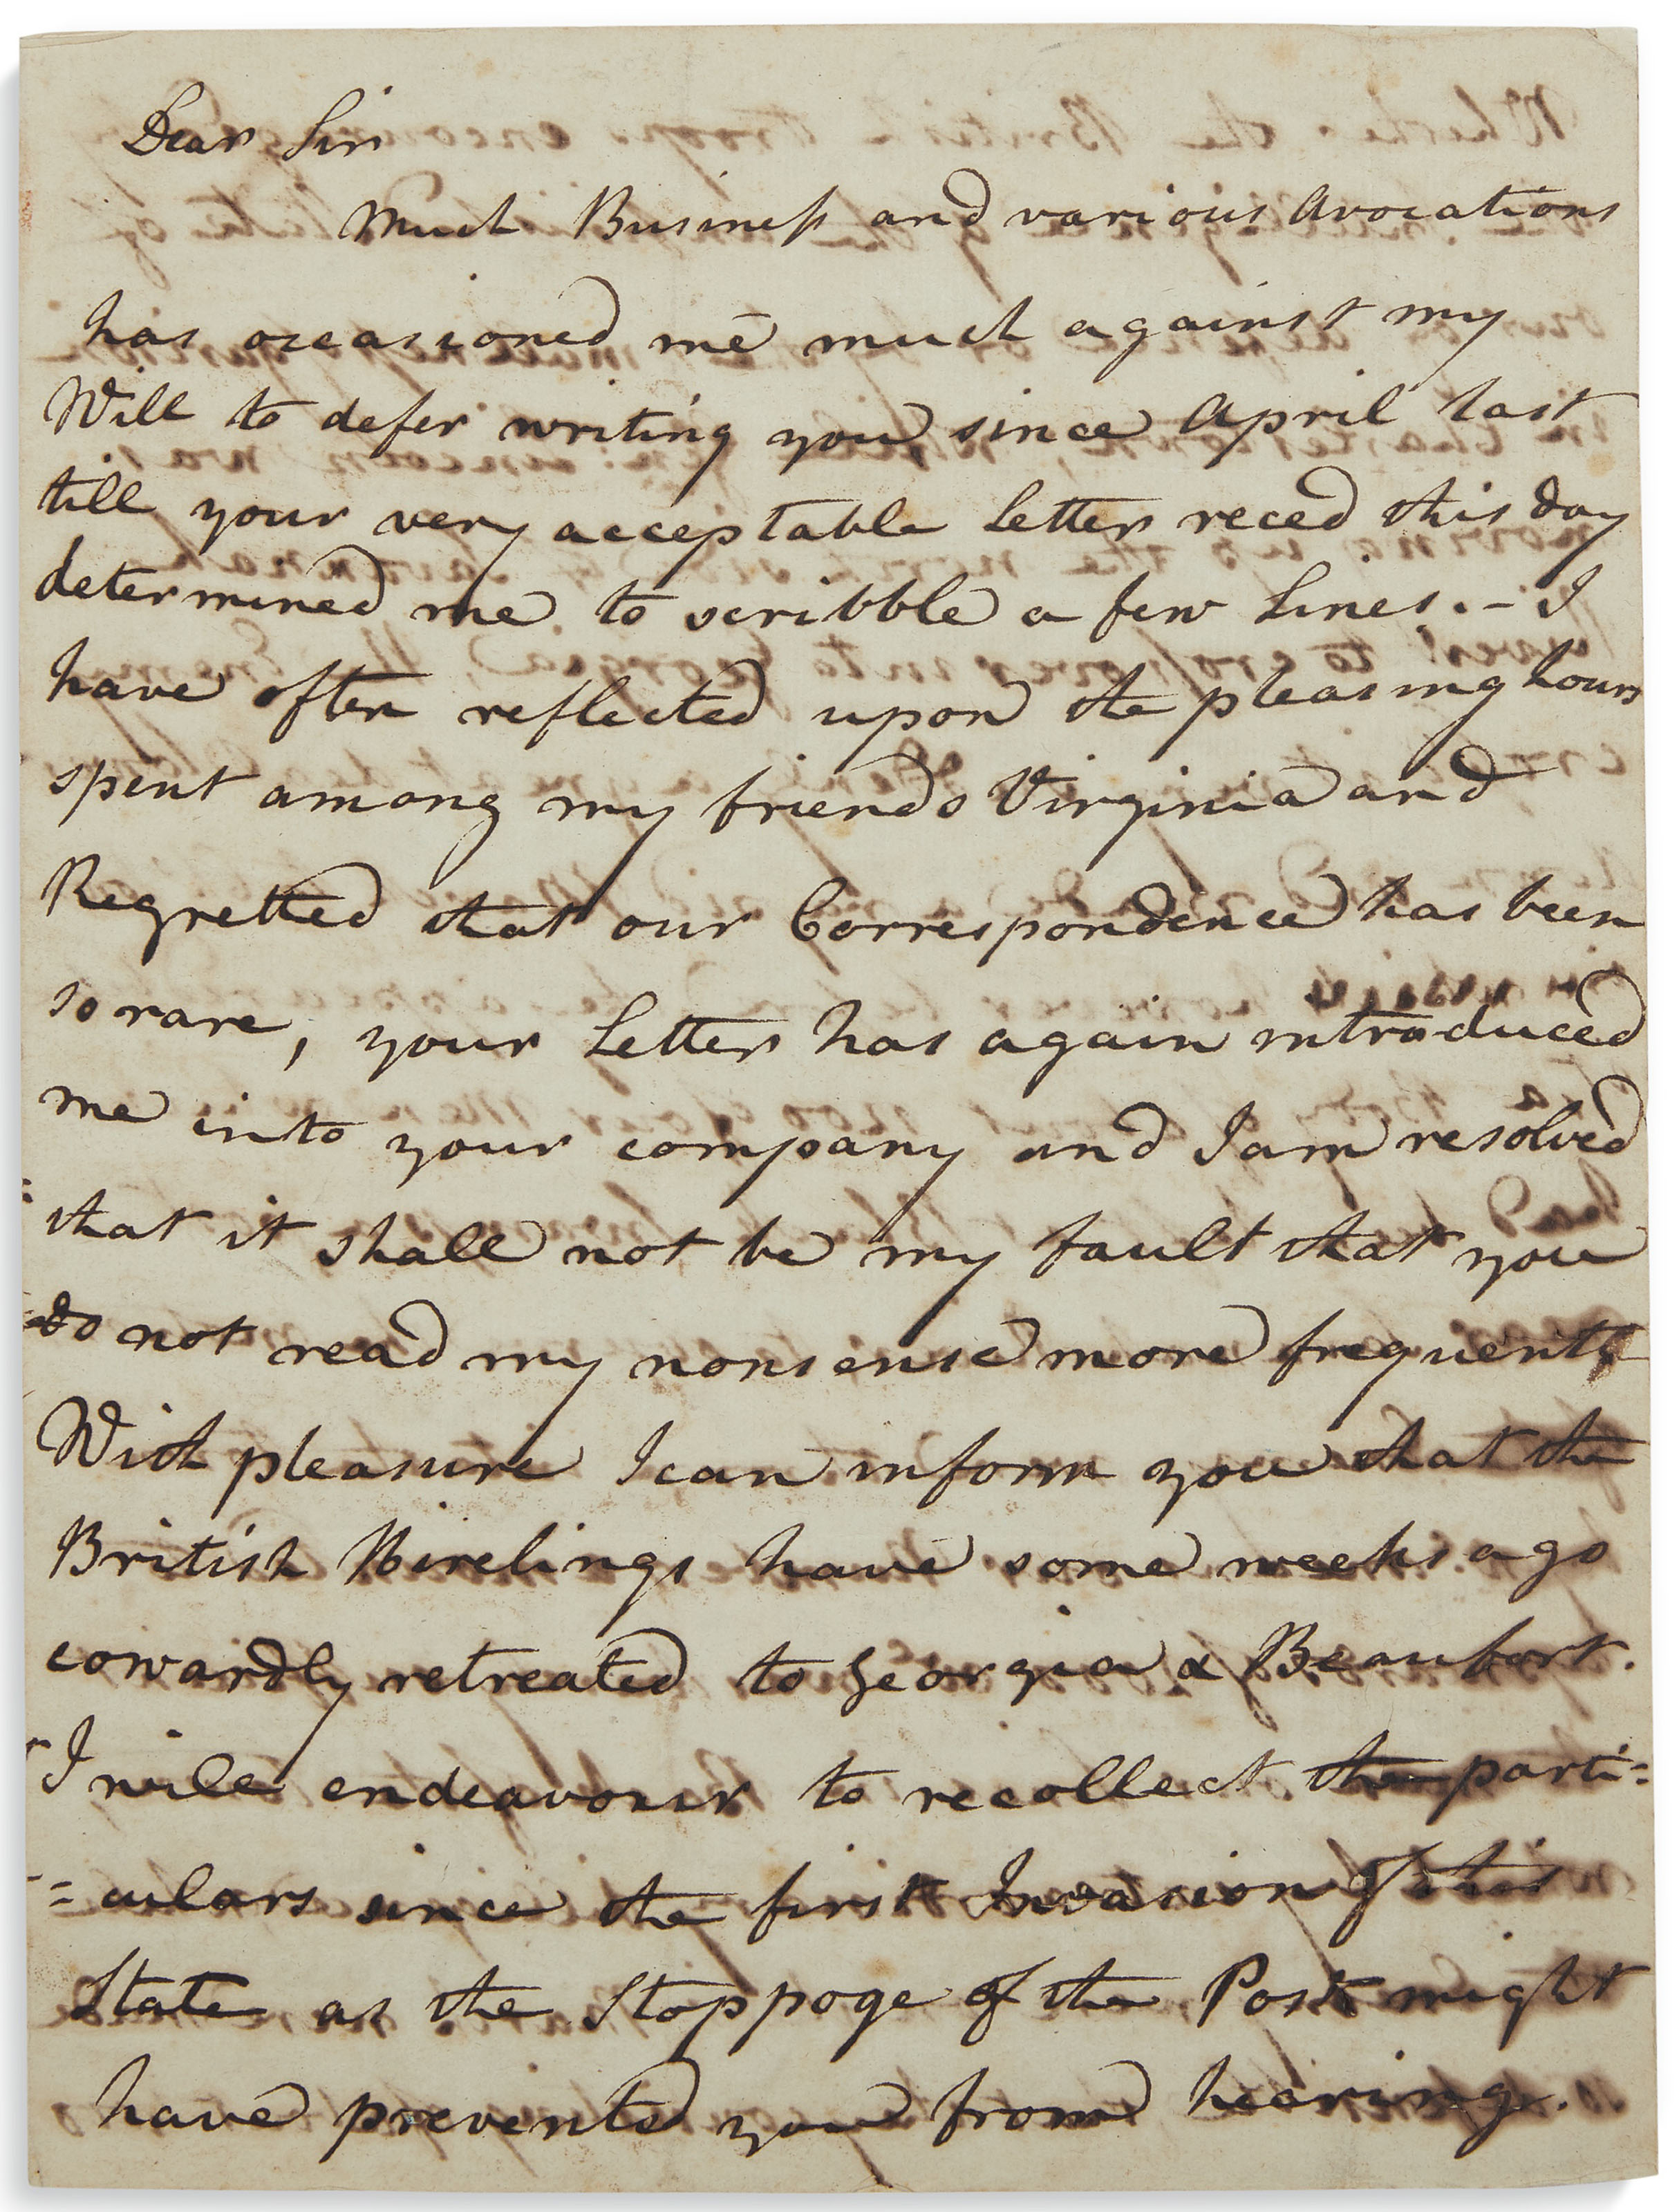 Dear Sir
Much Business and various Avocations
has occasioned me much against my
Will to defer writing you, since April last
till your very acceptable Letter reced this day
determined me to scribble a few Lines. - I
have often reflected upon the pleasing hours
spent among my friends Virginia and
Regretted that our Correspondence has been
so rare, your Letter has again introduced
me into your company and I am resolved
that it shall not be my fault that you
do not read my nonsense more frequently
With pleasure I can inform you that the
British Hirelings have some weeks ago
cowardly retreated to Georgia & Beaufort.
I will endeavour to recollect the parti=
=culars since the first Invasion of this
State as the Stoppage of the Post might
have prevented you from hearing.